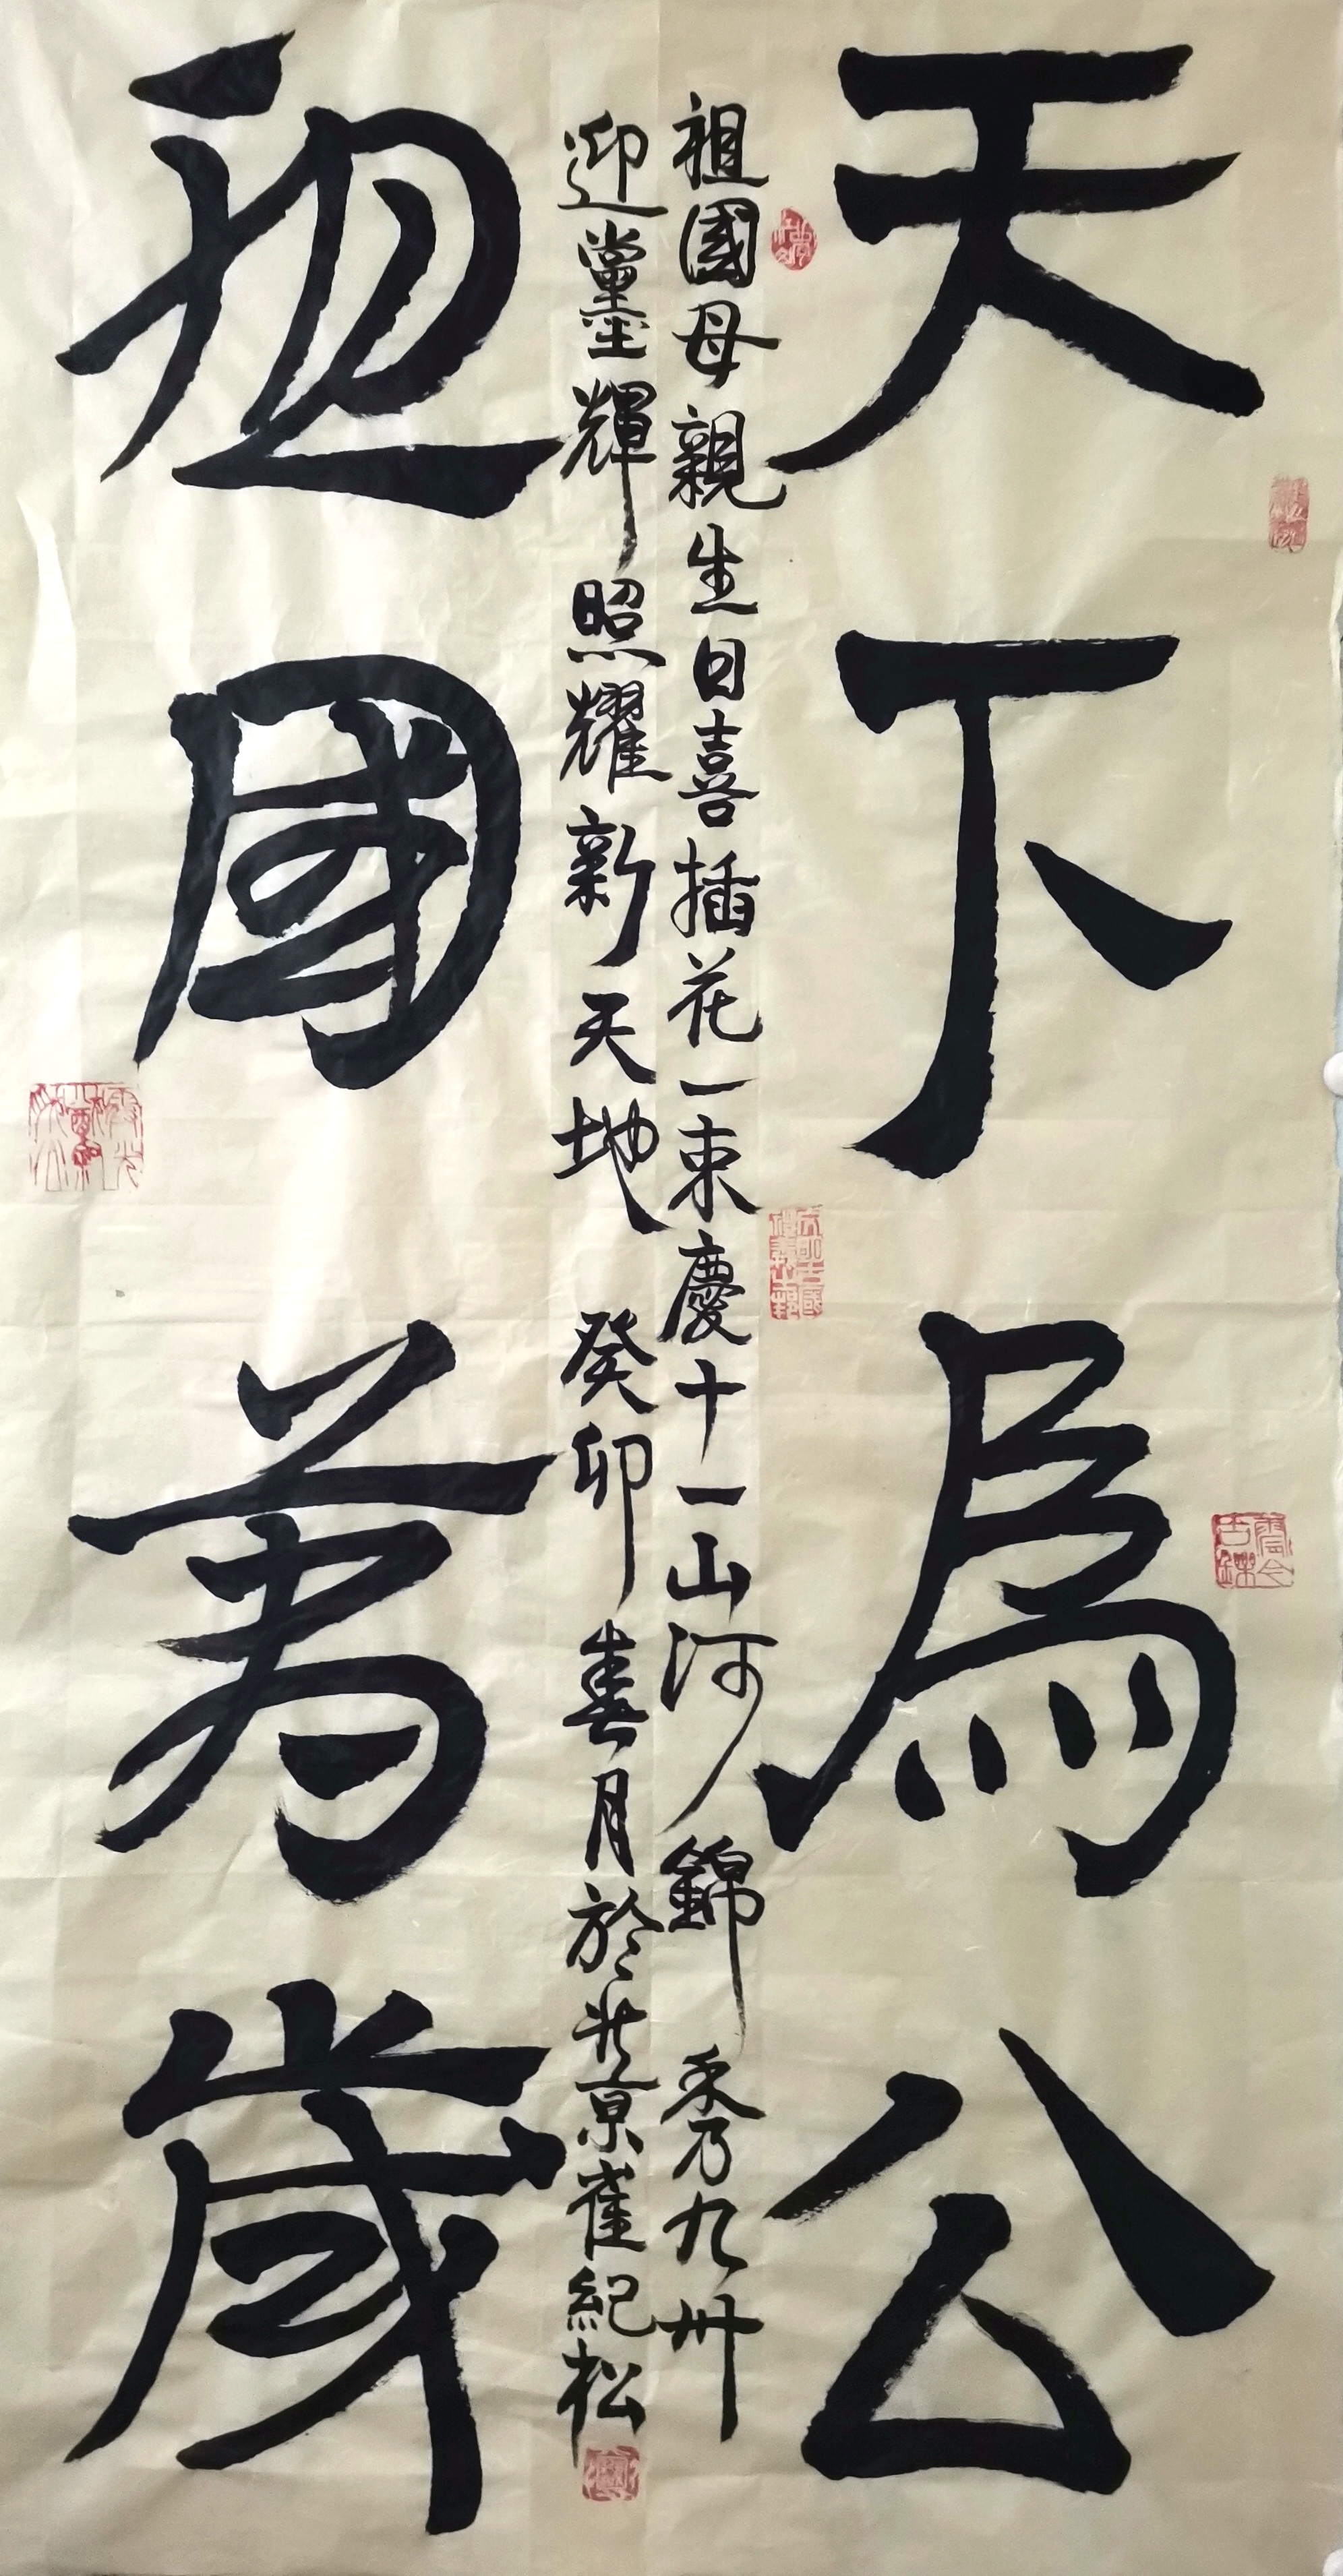 天下為公
祖國母親生日喜插花一束慶十一山河錦秀九州
迎黨輝照耀新天地 癸卯春月於北京崔紀松
祖國萬歲